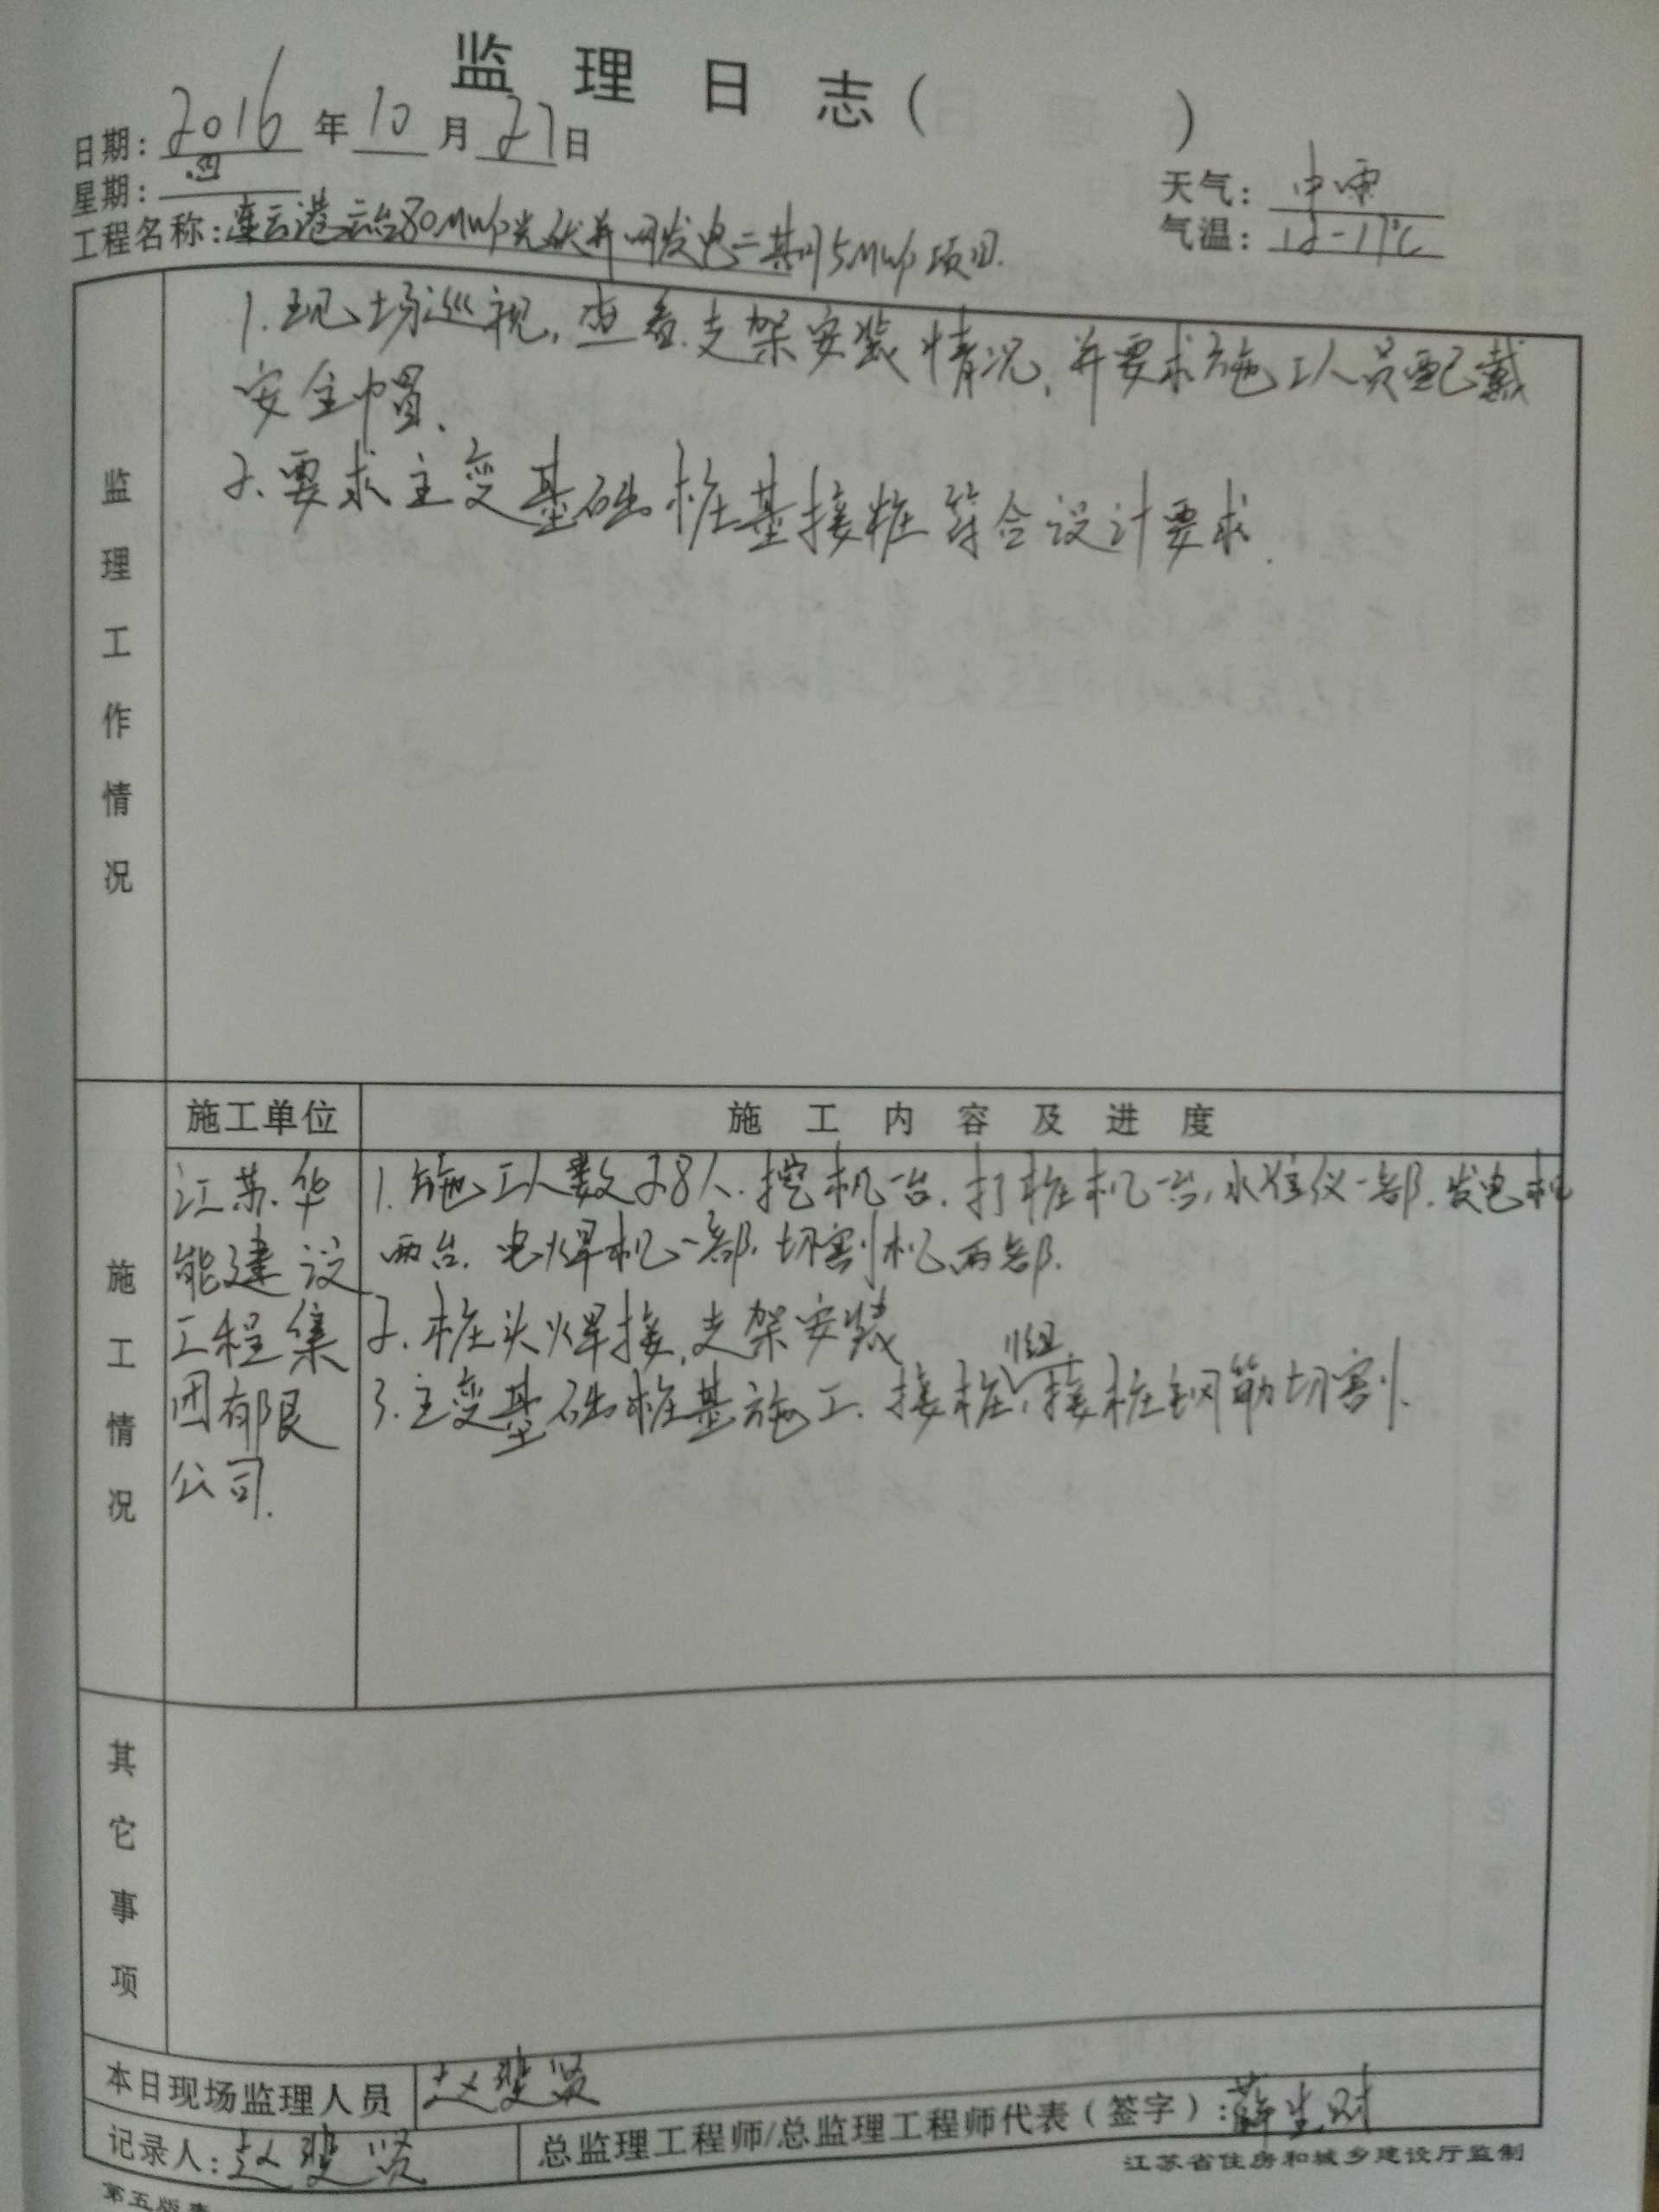 监理日志(　　)
日期：2016年10月27日
星期：四
天气：中雨
气温：12-17℃
工程名称：连云港云台80MWp光伏并网发电二期15MWp项目.
监理工作情况
1.现场巡视,查看支架安装情况,并要求施工人员配戴
安全帽.
2.要求主变基础桩基接桩符合设计要求.
施工情况
施工单位
施工内容及进度
江苏华
能建设
工程集
团有限
公司.
1.施工人数28人.挖机一台.打桩机一台,水准仪一部.发电机
两台.电焊机一部.切割机两部.
2.桩头焊接,支架安装
3.主变基础桩基施工.接桩1组,接桩钢筋切割.
其它事项
本日现场监理人员 赵斐贤
记录人：赵斐贤
总监理工程师/总监理工程师代表(签字)：薛生财
江苏省住房和城乡建设厅监制
第五版表